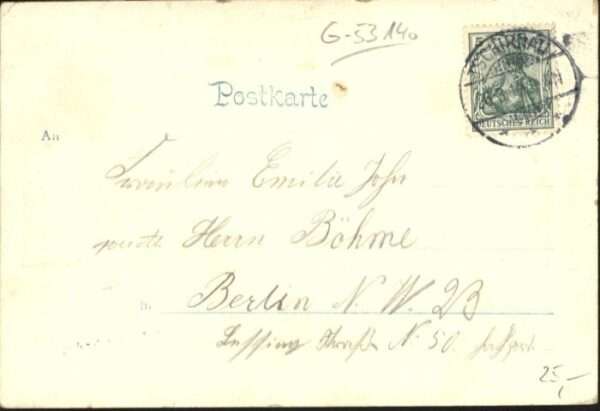 G-53140
5
TSCHIRNAU
DEUTSCHES REICH
Postkarte
An
Fräulein Emilie John
Herrn Böhme
in
Berlin N. W. 23
Lessing Straße N. 50.
25,-